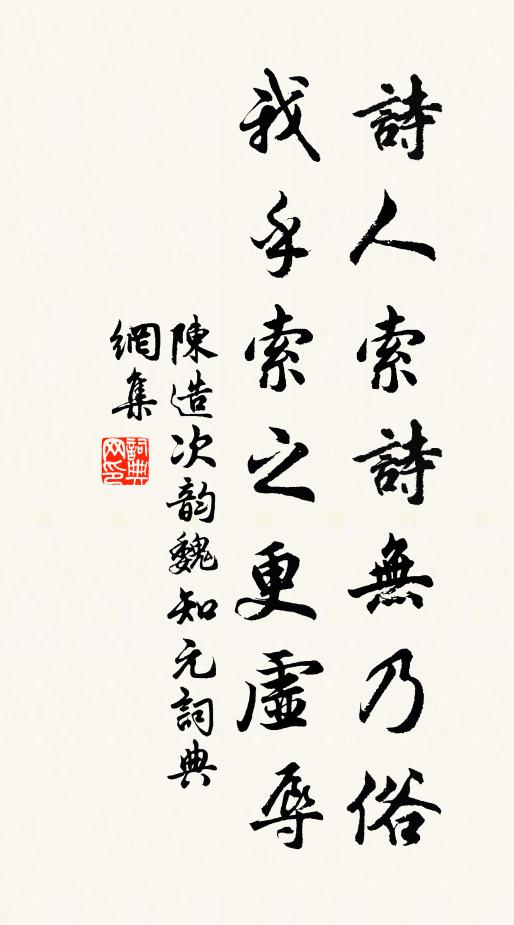 詩人索詩無乃俗
我乎索之更虛辱
陳造次韵魏知元詞典
網集
詞典
网印